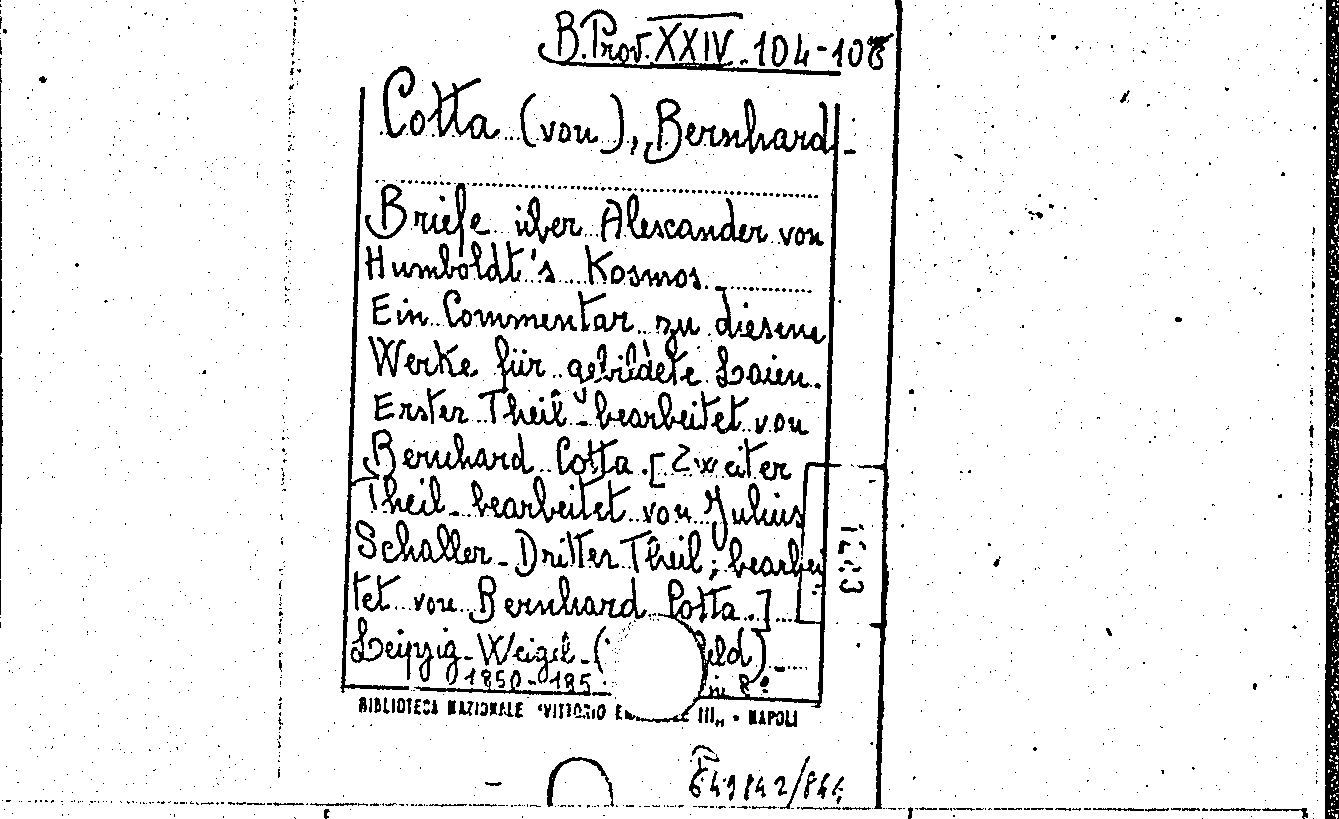 B. Prov. XXIV. 104-108
Cotta (von), Bernhard -
Briefe über Alexander von
Humboldt's Kosmos.
Ein Commentar zu diesem
Werke für gebildete Laien.
Erster Theil - bearbeitet von
Bernhard Cotta. [Zweiter
Theil - bearbeitet von Julius
Schaller - Dritter Theil; bearbei
tet von Bernhard Cotta.]
Leipzig - Weigel - ( eld) -
1850-185 in 8º
BIBLIOTECA NAZIONALE "VITTORIO E LE III„ - NAPOLI
649842/844